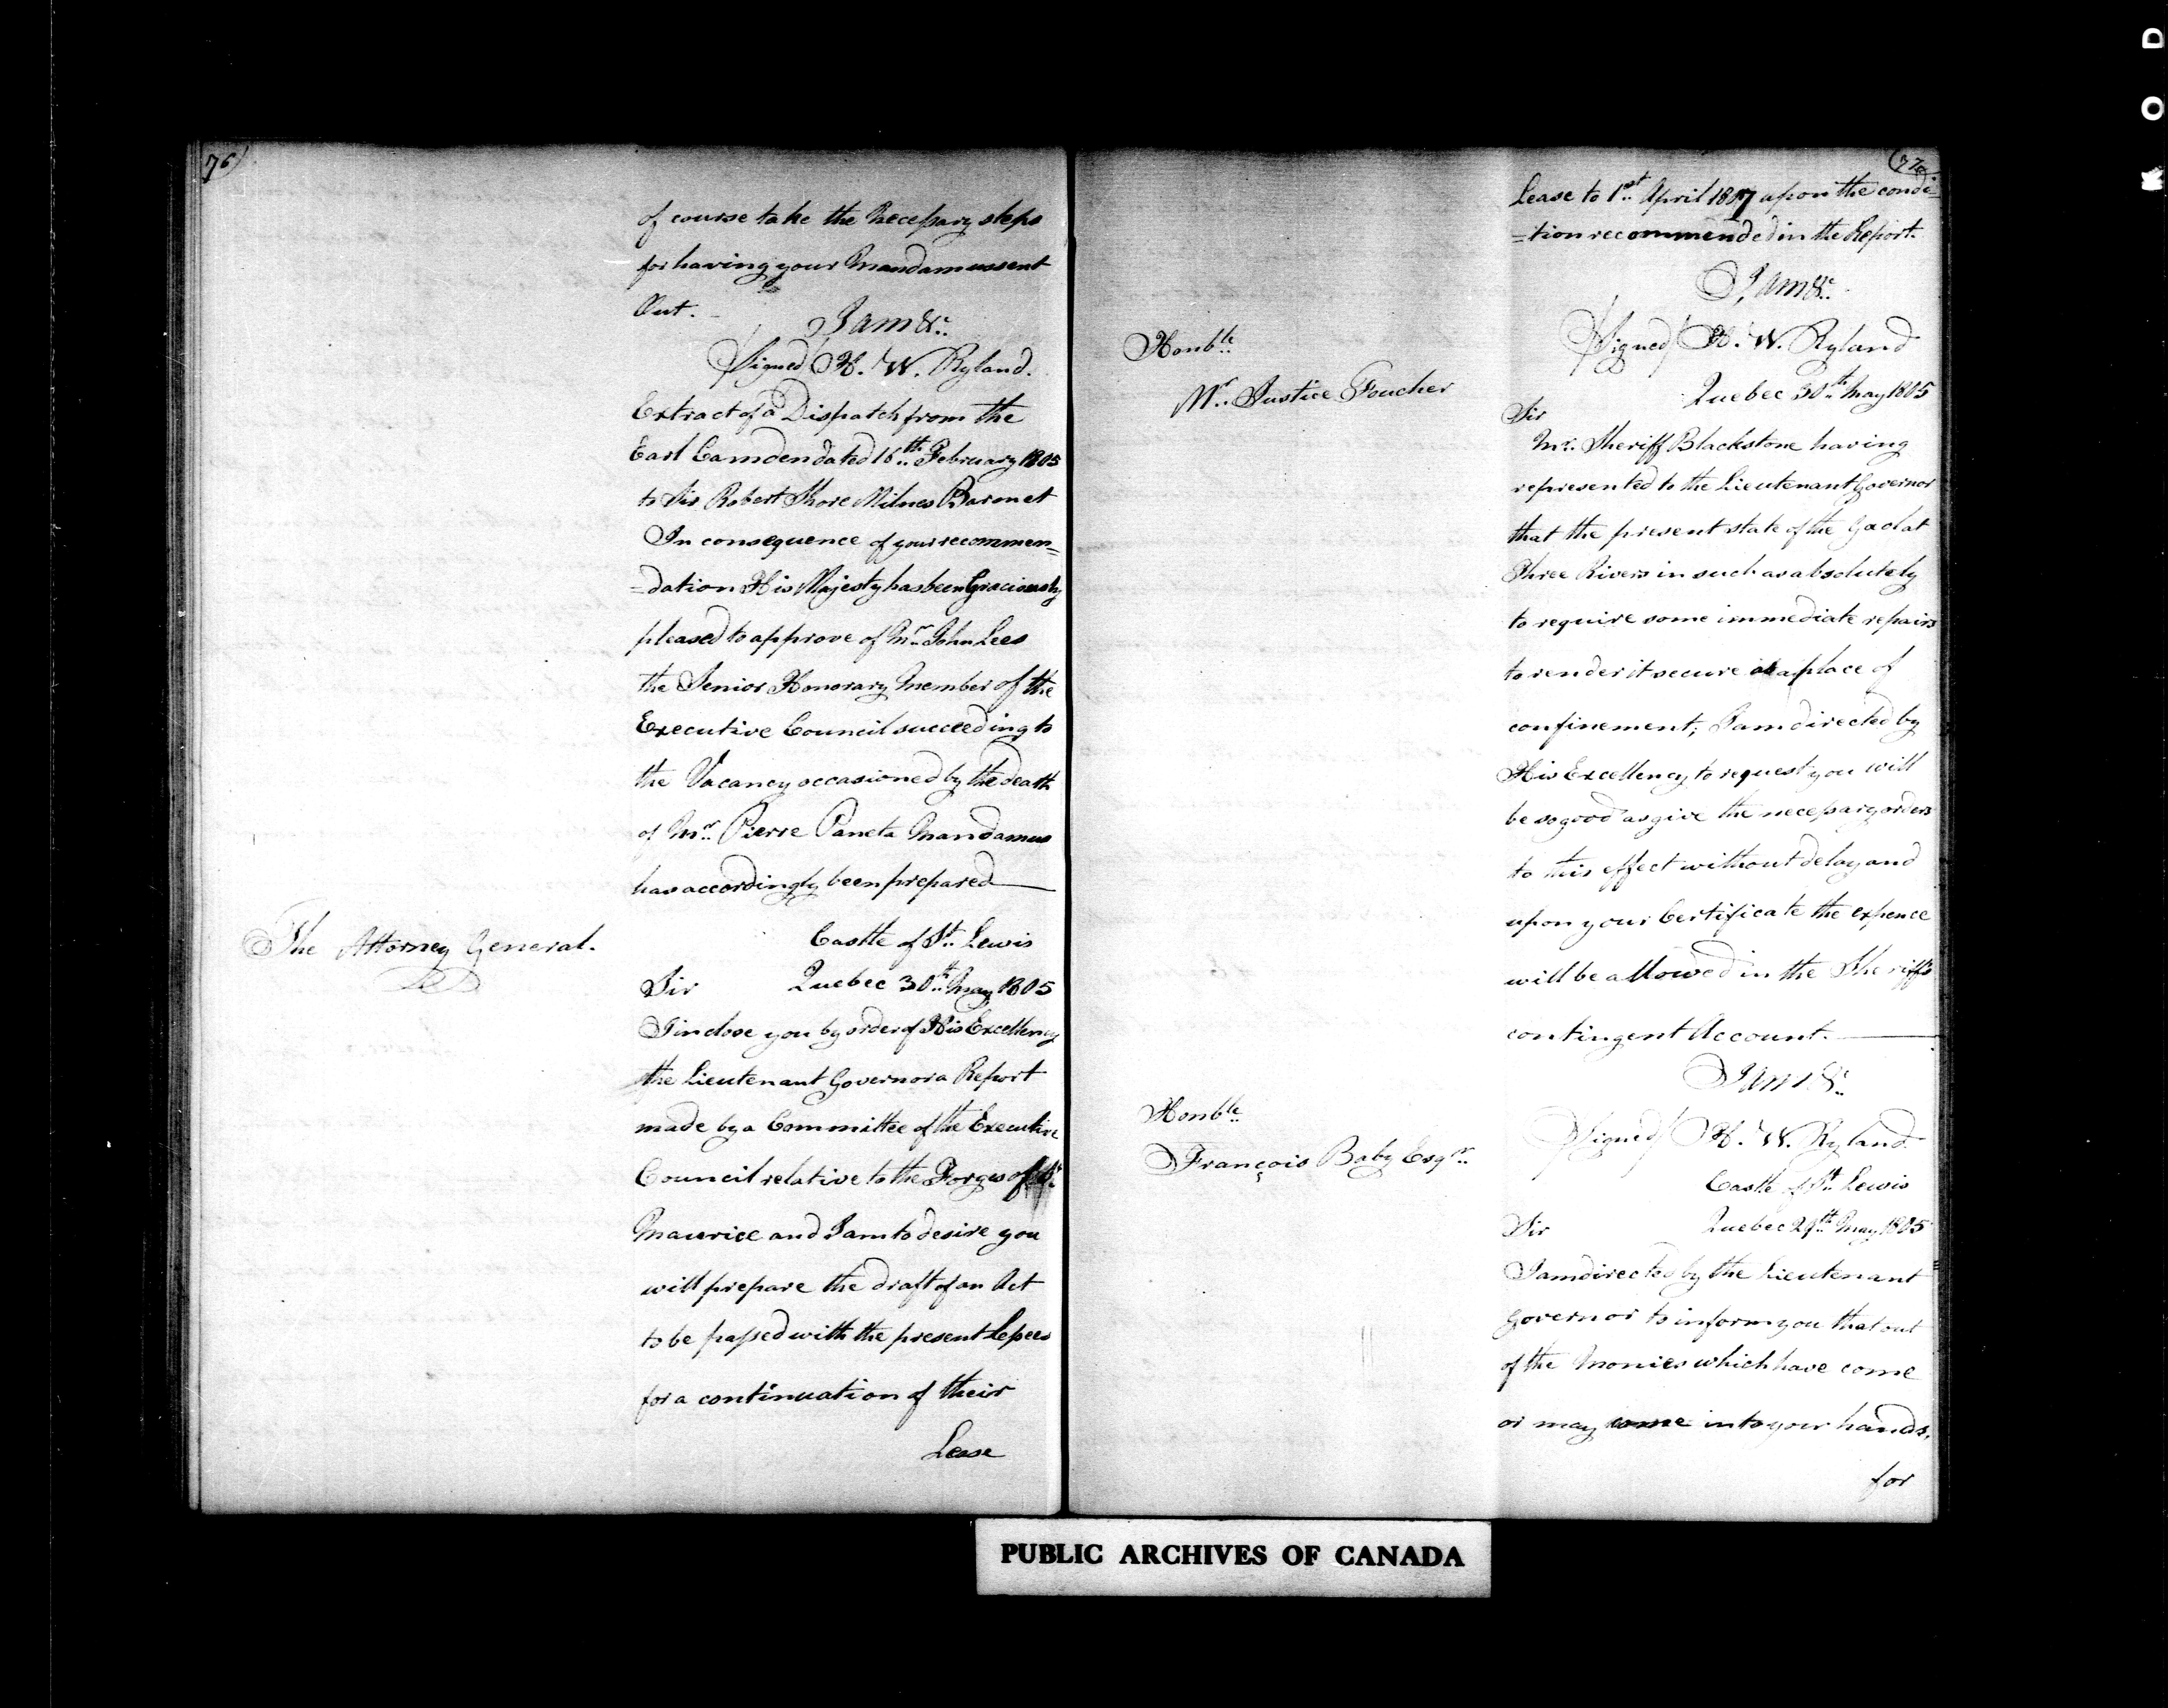 76)
of course take the Necessary steps
for having your Mandamus sent
Out.
I am &c.
Signed/ H. W. Ryland.
Extract of a Dispatch from the
Earl Camden dated 16th February 1805
to Sir Robert Shore Milnes Baronet
In consequence of your recommen=
=dation His Majesty has been Graciously
pleased to approve of Mr. John Lees
the Senior Honorary Member of the
Executive Council succeeding to
the Vacancy occasioned by the death
of Mr. Pierre Panet a Mandamus
has accordingly been prepared
The Attorney General.
Castle of St. Lewis
Sir Quebec 30th May 1805
I inclose you by order of His Excellency
the Lieutenant Governor a Report
made by a Committee of the Executive
Council relative to the Forges of St.
Maurice and I am to desire you
will prepare the draft of an Act
to be passed with the present Lessees
for a continuation of their
Lease
(77
Lease to 1st April 1807 upon the condi=
=tion recommended in the Report.
I am &c.
Signed/ H. W. Ryland
Honble.
Mr. Justice Foucher
Quebec 30th May 1805
Sir
Mr. Sheriff Blackstone having
represented to the Lieutenant Governor
that the present state of the Gaol at
Three Rivers in such as absolutely
to require some immediate repairs
to render it secure as a place of
confinement; I am directed by
His Excellency to request you will
be so good as give the necessary orders
to this effect without delay and
upon your Certificate the expence
will be allowed in the Sheriffs
contingent Account.
I am &c.
Signed/ H. W. Ryland.
Honble.
François Baby Esqr.
Castle of St. Lewis
Sir Quebec 29th May 1805
I am directed by the Lieutenant
Governor to inform you that out
of the Monies which have come
or may come into your hands,
for
PUBLIC ARCHIVES OF CANADA
K O D